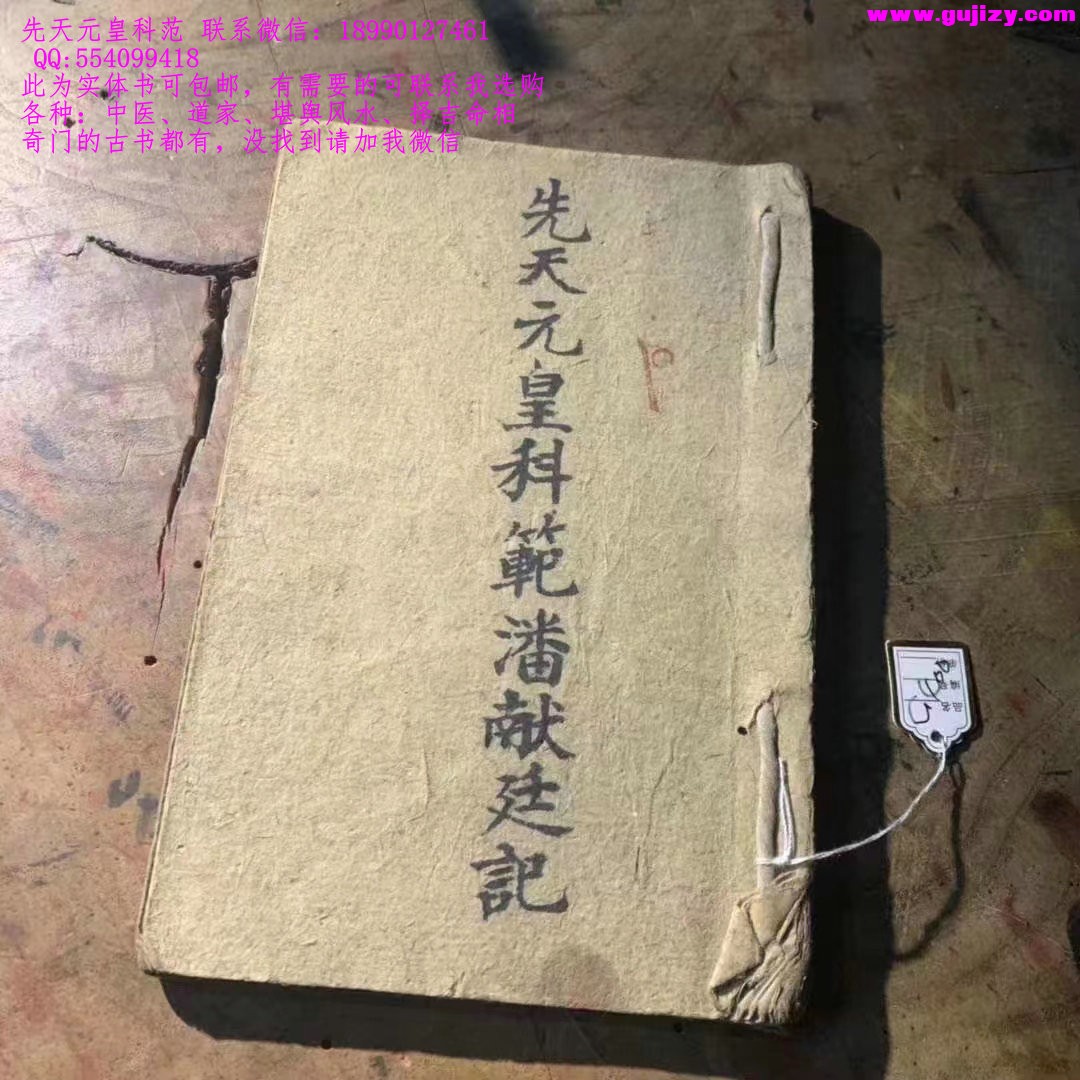 先天元皇科范 联系微信：18990127461
www.gujizy.com
QQ:554099418
此为实体书可包邮，有需要的可联系我选购
各种：中医、道家、堪舆风水、择吉命相
奇门的古书都有，没找到请加我微信
先天元皇科範潘献廷記